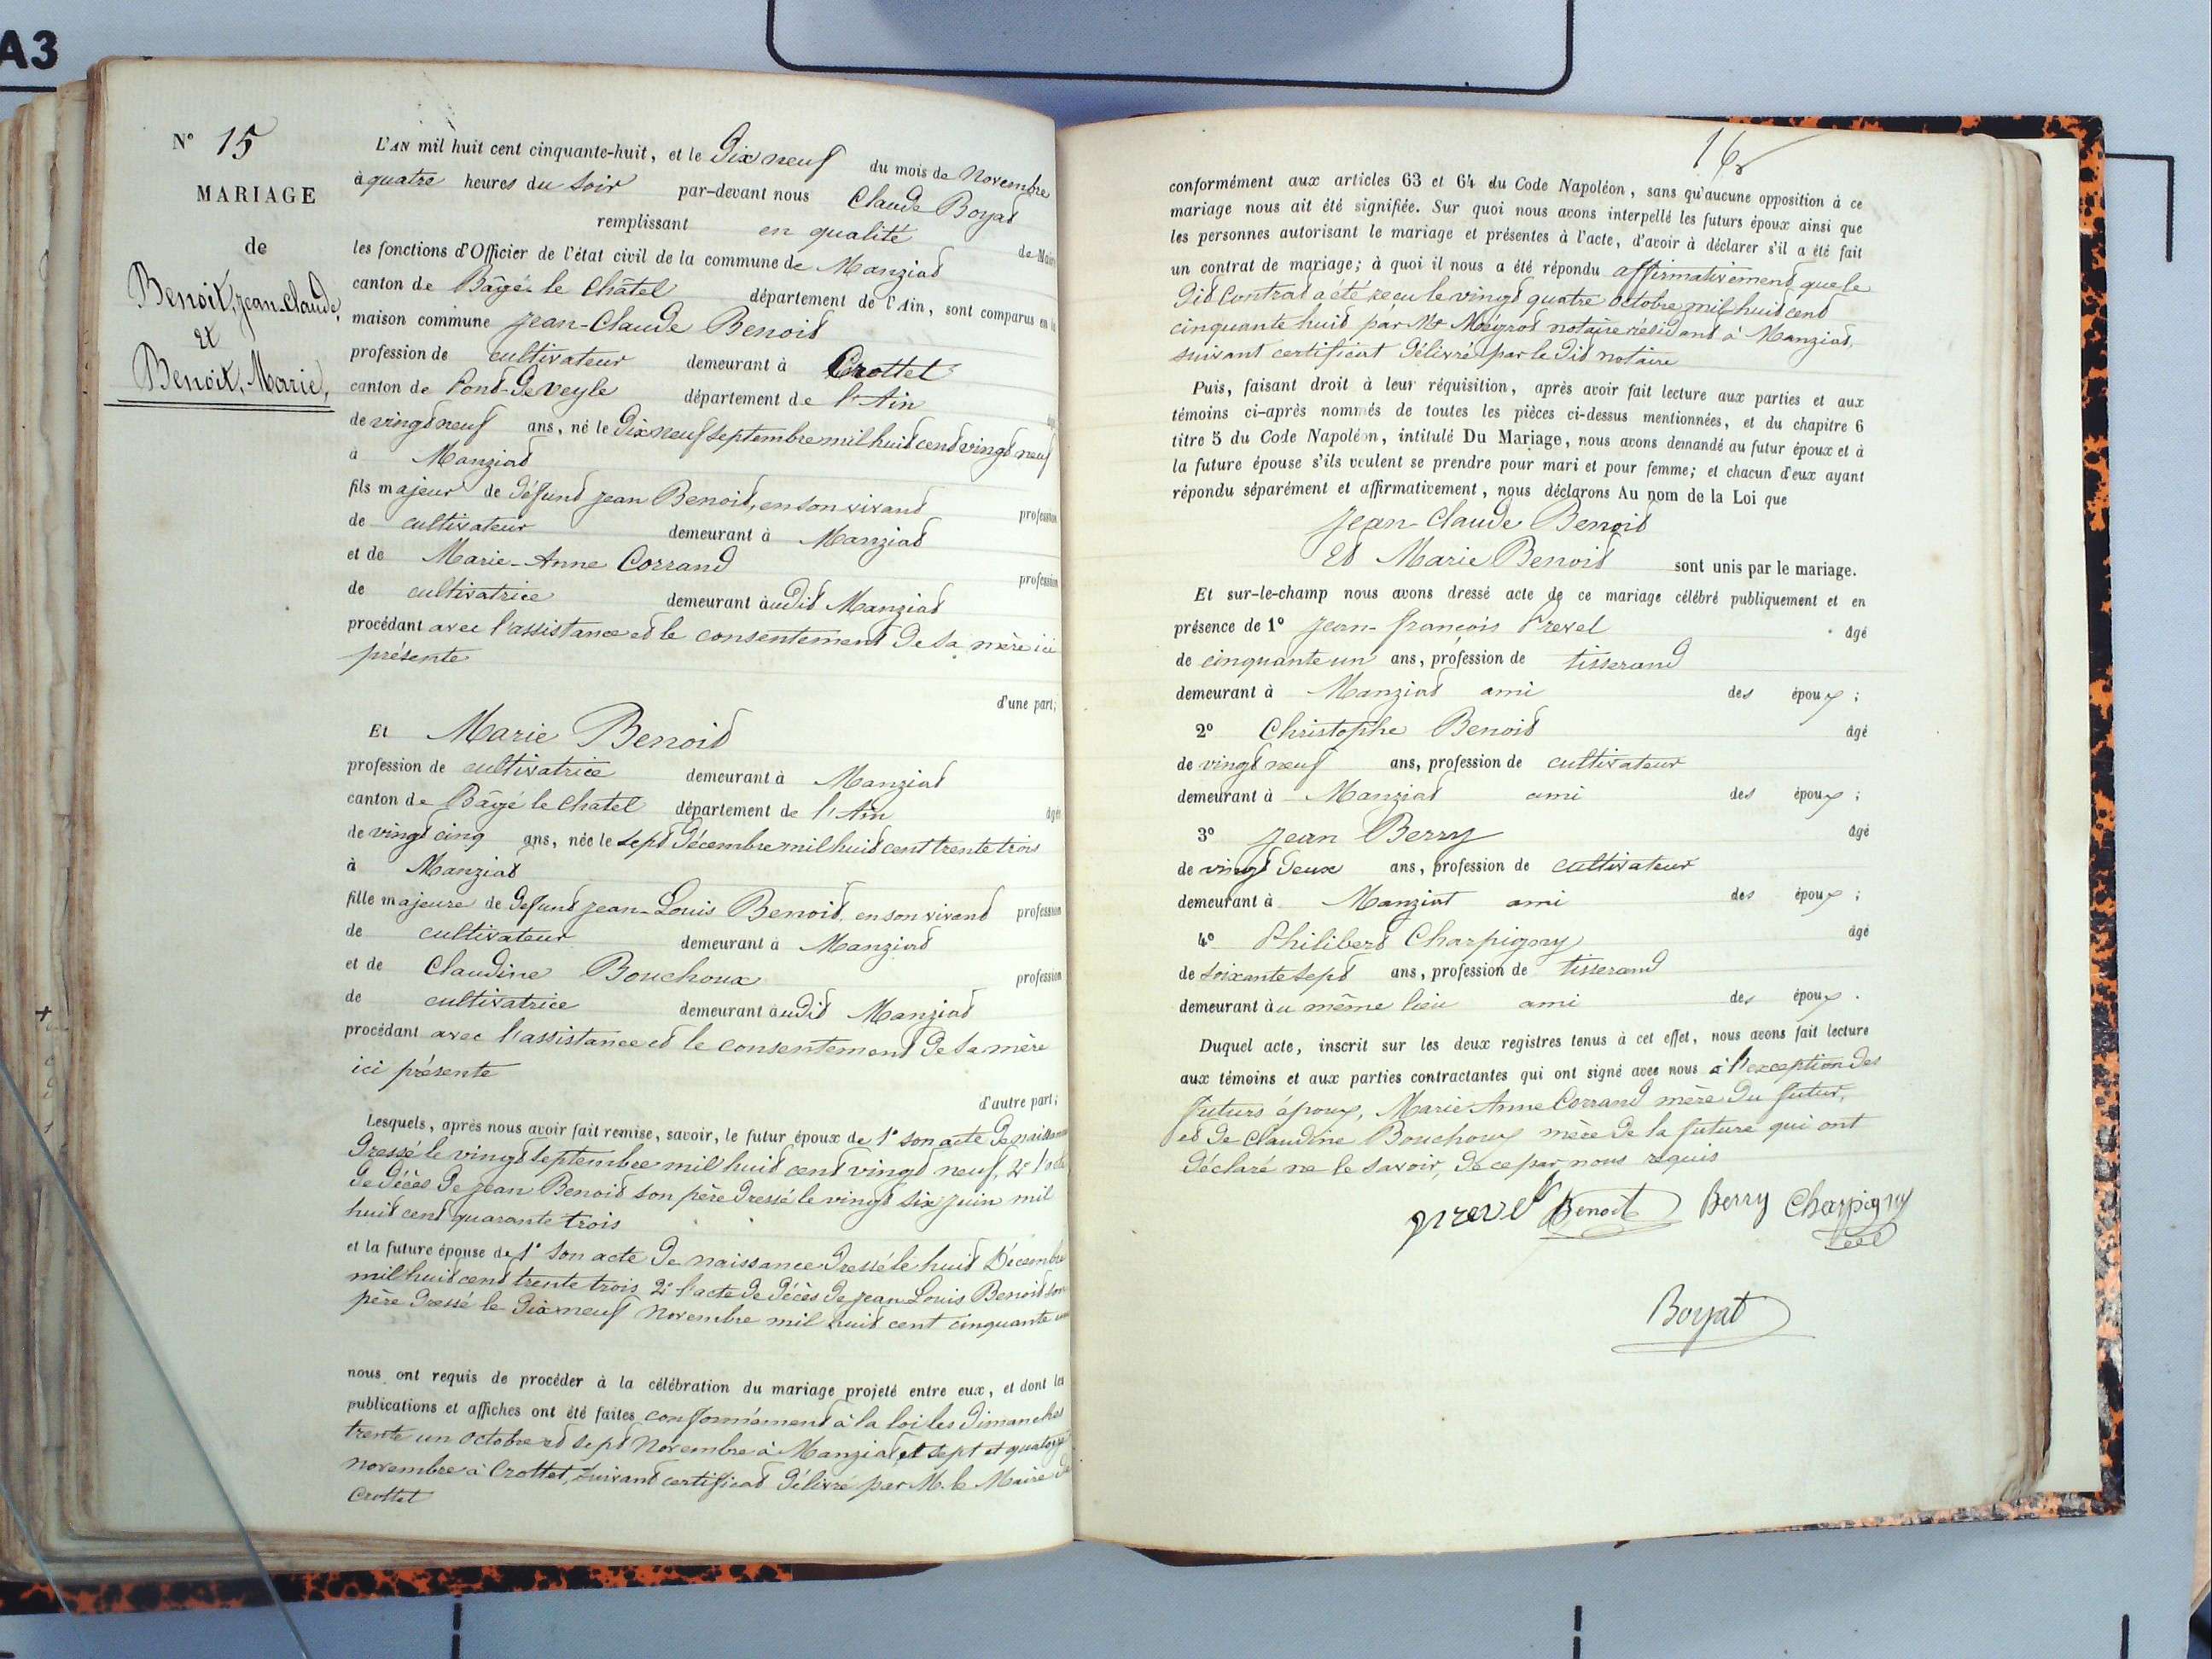 A3
N° 15
MARIAGE
de
Benoit, Jean-Claude,
et
Benoit, Marie,
L'AN mil huit cent cinquante-huit, et le Dix neuf du mois de Novembre
à quatre heures du soir par-devant nous Claude Boyat
remplissant en qualité de Maire
les fonctions d'Officier de l'état civil de la commune de Manziat
canton de Bâgé-le Châtel département de l'Ain, sont comparus en la
maison commune Jean-Claude Benoit
profession de cultivateur demeurant à Crottet
canton de Pont-de veyle département de l'Ain
de vingt neuf ans, né le dix neuf septembre mil huit cent vingt neuf
à Manziat
fils majeur de défunt Jean Benoit, en son vivant profession
de cultivateur demeurant à Manziat
et de Marie-Anne Corrand profession
de cultivatrice demeurant audit Manziat
procédant avec l'assistance et le consentement de sa mère ici
présente
d'une part;
Et Marie Benoit
profession de cultivatrice demeurant à Manziat
canton de Bâgé le Chatel département de l'Ain âgée
de vingt cinq ans, née le sept Décembre mil huit cent trente trois
à Manziat
fille majeure de défunt Jean-Louis Benoit, en son vivant profession
de cultivateur demeurant à Manziat
et de Claudine Bouchoux profession
de cultivatrice demeurant audit Manziat
procédant avec l'assistance et le consentement de sa mère
ici présente
d'autre part;
Lesquels, après nous avoir fait remise, savoir, le futur époux de 1° son acte de naissance
dressé le vingt septembre mil huit cent vingt neuf, 2° l'acte
de décès de Jean Benoit son père dressé le vingt six juin mil
huit cent quarante trois
et la future épouse de 1° son acte de naissance dressé le huit Décembre
mil huit cent trente trois, 2° l'acte de décès de Jean Louis Benoit son
père dressé le dix neuf Novembre mil huit cent cinquante un
nous ont requis de procéder à la célébration du mariage projeté entre eux, et dont les
publications et affiches ont été faites conformément à la loi les dimanches
trente un octobre et sept Novembre à Manziat, et sept et quatorze
novembre à Crottet, suivant certificat délivré par M. le Maire de
Crottet
16
conformément aux articles 63 et 64 du Code Napoléon, sans qu'aucune opposition à ce
mariage nous ait été signifiée. Sur quoi nous avons interpellé les futurs époux ainsi que
les personnes autorisant le mariage et présentes à l'acte, d'avoir à déclarer s'il a été fait
un contrat de mariage; à quoi il nous a été répondu affirmativement que le
dit Contrat a été reçu le vingt quatre octobre mil huit cent
cinquante huit par Mt Meygrot notaire résidant à Manziat,
suivant certificat délivré par le dit notaire
Puis, faisant droit à leur réquisition, après avoir fait lecture aux parties et aux
témoins ci-après nommés de toutes les pièces ci-dessus mentionnées, et du chapitre 6
titre 5 du Code Napoléon, intitulé Du Mariage, nous avons demandé au futur époux et à
la future épouse s'ils veulent se prendre pour mari et pour femme; et chacun d'eux ayant
répondu séparément et affirmativement, nous déclarons Au nom de la Loi que
Jean-Claude Benoit
Et Marie Benoit sont unis par le mariage.
Et sur-le-champ nous avons dressé acte de ce mariage célébré publiquement et en
présence de 1° Jean-françois Prevel âgé
de cinquante un ans, profession de tisserand
demeurant à Manziat ami des époux;
2° Christophe Benoit âgé
de vingt neuf ans, profession de cultivateur
demeurant à Manziat ami des époux;
3° Jean Berry âgé
de vingt deux ans, profession de cultivateur
demeurant à Manziat ami des époux;
4° Philibert Charpigny âgé
de soixante sept ans, profession de tisserand
demeurant au même lieu ami des époux.
Duquel acte, inscrit sur les deux registres tenus à cet effet, nous avons fait lecture
aux témoins et aux parties contractantes qui ont signé avec nous à l'exception des
futurs époux, Marie Anne Corrand mère du futur,
et de Claudine Bouchoux mère de la future qui ont
déclaré ne le savoir, de ce par nous requis
prevel Benoit Berry Charpigny
Boyat